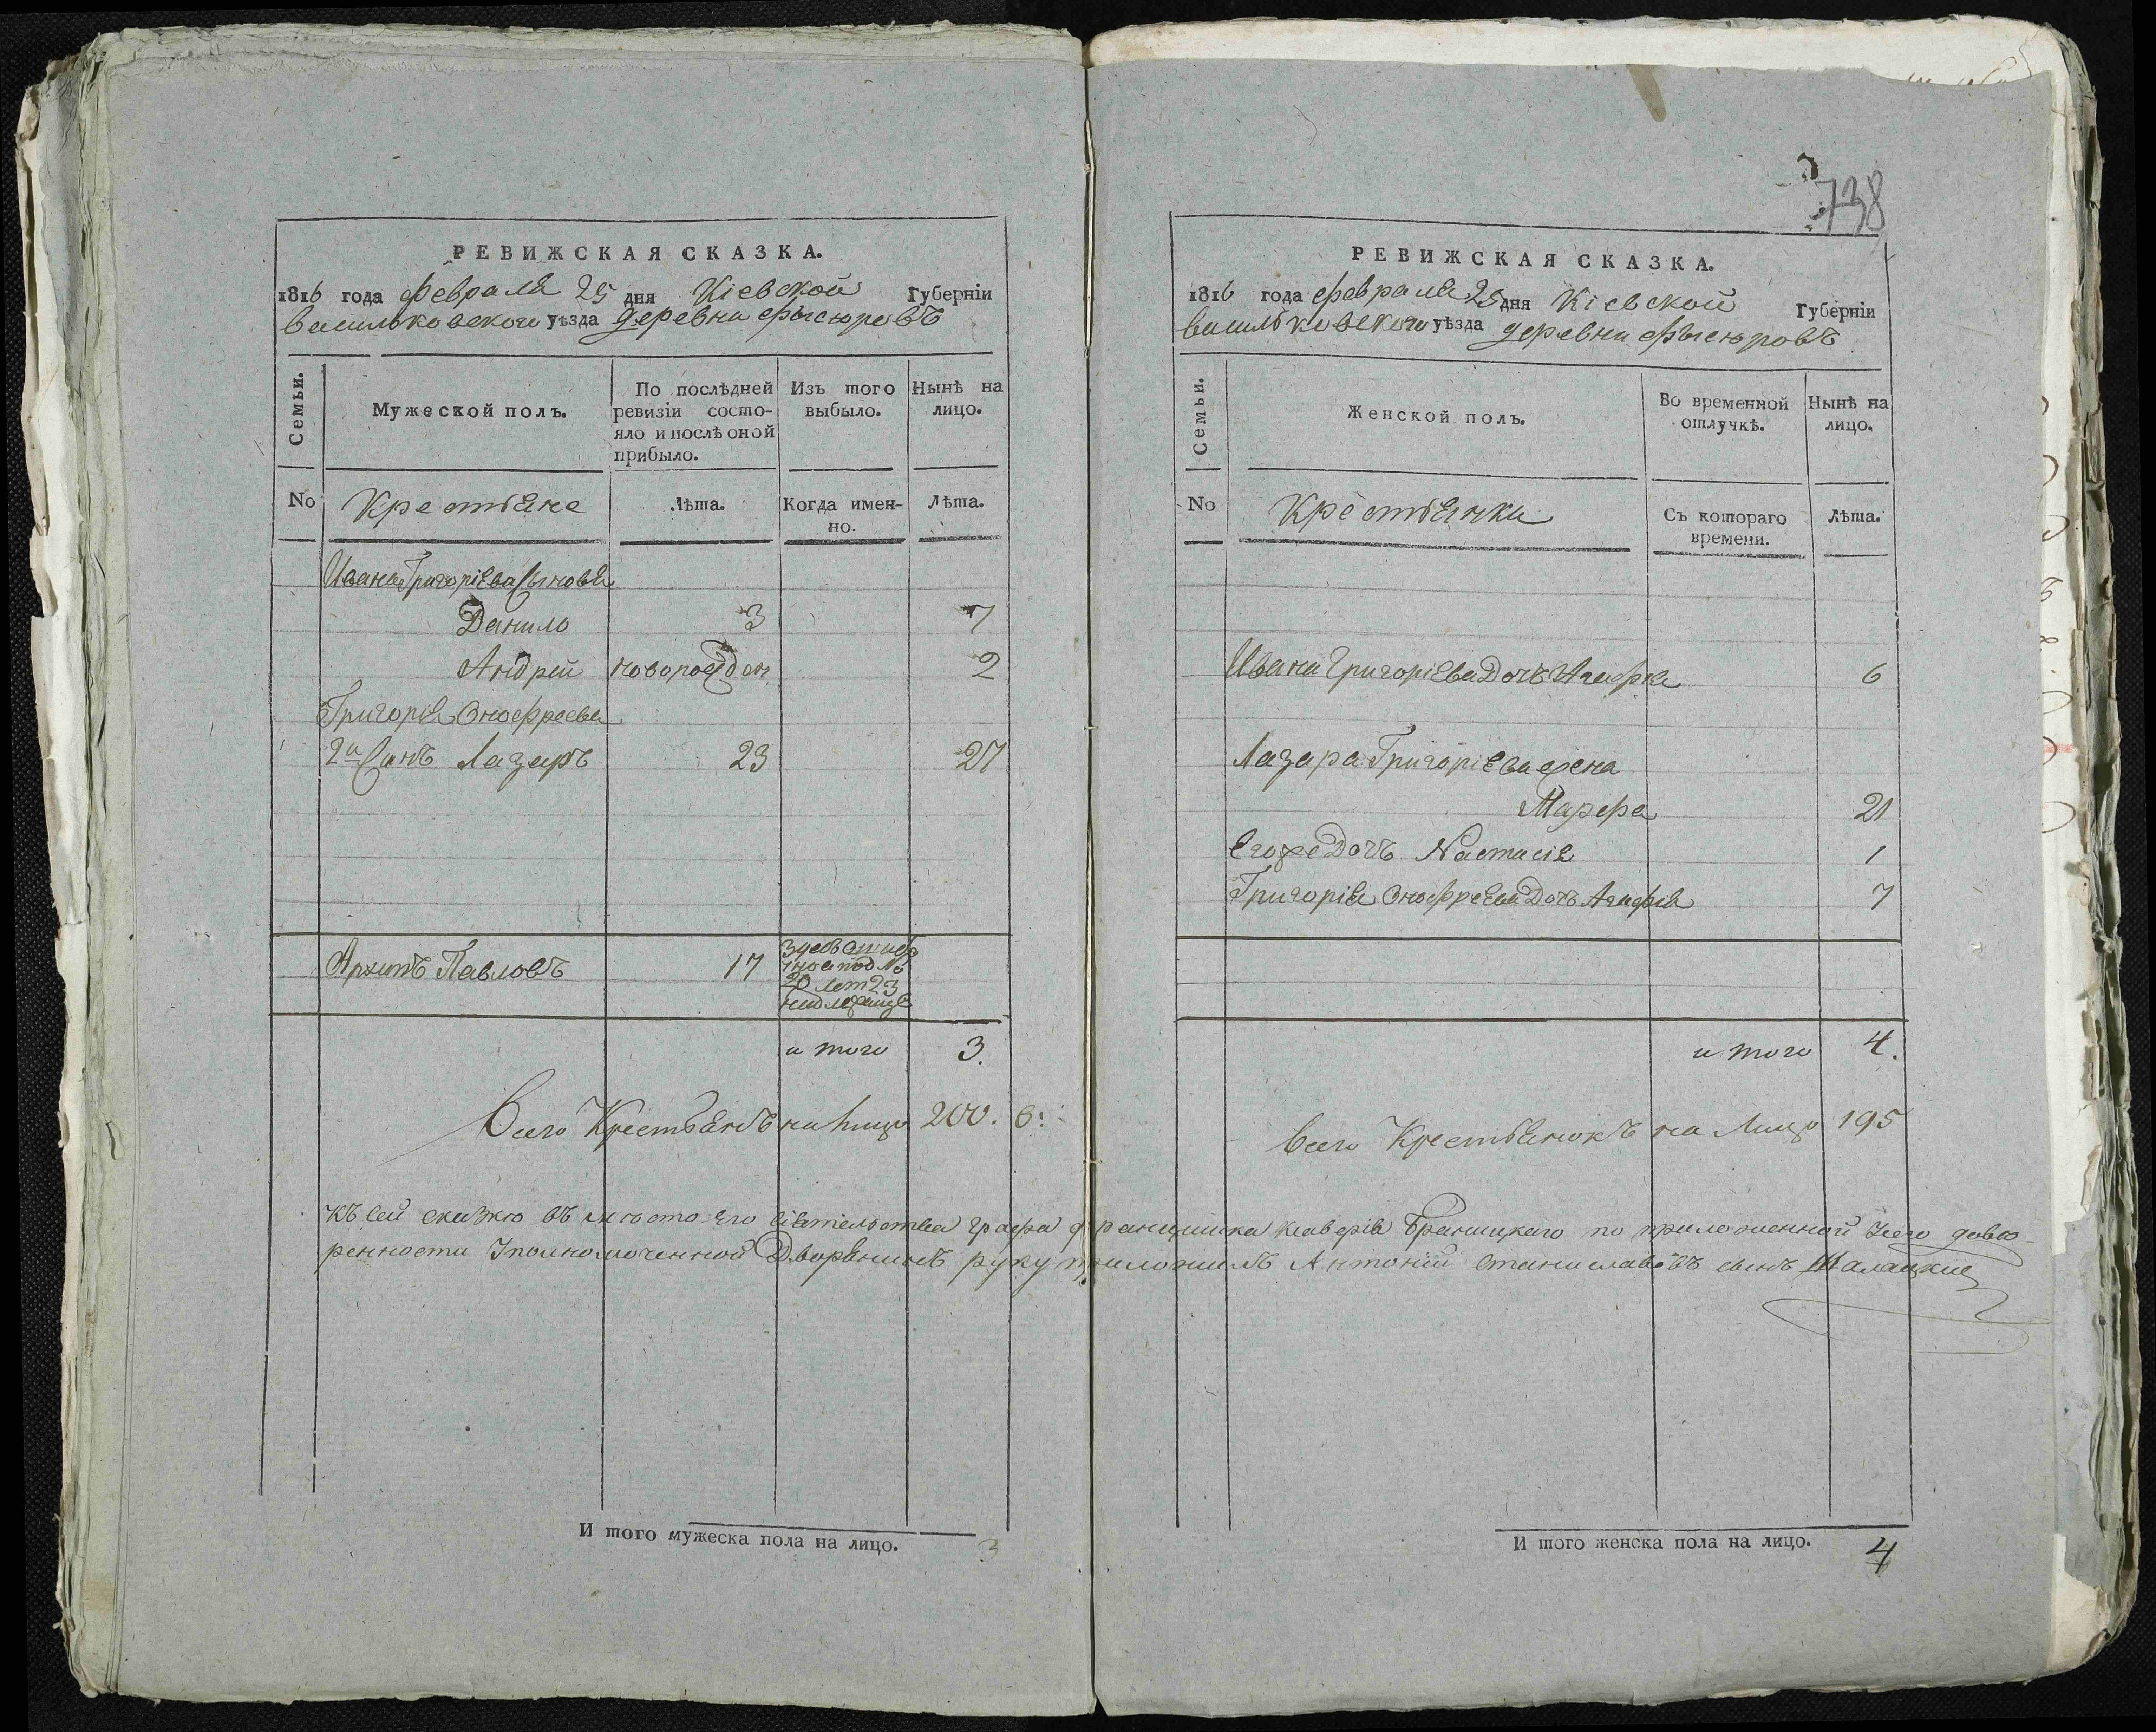 РЕВИЖСКАЯ СКАЗКА.
1816 года февраля 25 дня Кіевской Губерніи
васильковского уѣзда деревни Фысюровъ
Семьи.
Мужеской полъ.
По послѣдней
ревизіи состо-
яло и послѣ оной
прибыло.
Изъ того
выбыло.
Нынѣ на
лицо.
No
Крестьяне
Лѣта.
Когда имен-
но.
Лѣта.
Ивана Григоріева Сыновья
Данило 3 7
Андрей новорожден 2
Григорія Онофреева
2й Сынъ Лазаръ 23 27
Архипъ Павловъ 17
20 Лет 23
и того 3.
Всего Крестьянъ на лицо 200. 6:
И того мужеска пола на лицо. 3
738
РЕВИЖСКАЯ СКАЗКА.
1816 года февраля 25 дня Кіевской Губерніи
васильковского уѣзда деревни Фысюровъ
Семьи.
Женской полъ.
Во временной
отлучкѣ.
Нынѣ на
лицо.
No
Крестьянки
Съ котораго
времени.
Лѣта.
Ивана Григоріева Дочь Агафья 6
Лазара Григоріева жена
Марфа 21
Егоже Дочь Настасія 1
Григорія Онофреева Дочь Агафія 7
и того 4.
Всего Крестьянокъ на Лицо 195
къ сей скажкю въ мѣсто Его сіятельства графа францишка ксаверія Браницкаго по приложенной Его довѣ-
ренности Уполномоченной Дворянинъ руку приложилъ Антоній станиславовъ сынъ
И того женска пола на лицо. 4